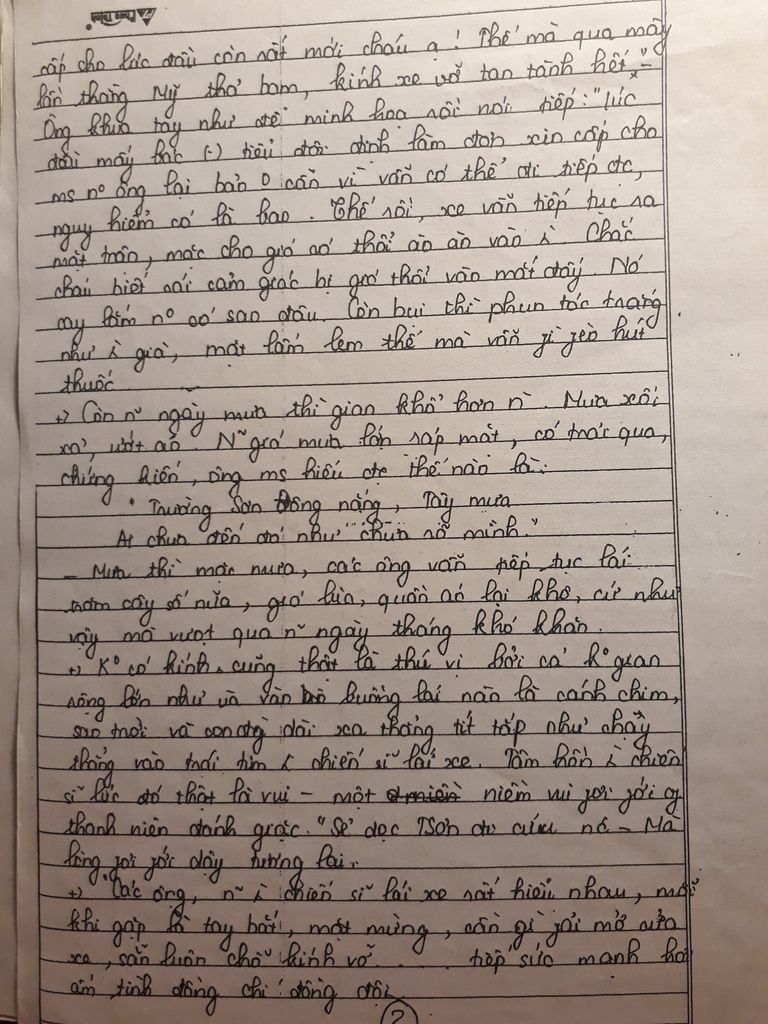 cấp cho lúc đầu còn rất mới cháu ạ! Thế mà qua mấy
lần thằng Mỹ thả bom, kính xe vỡ tan tành hết."-
Ông khua tay như để minh hoạ rồi nói tiếp: "lúc
đầu mấy bác (-) tiểu đội định làm đơn xin cấp cho
ms nº ông lại bảo 0 cần vì vẫn có thể đi tiếp đc,
nguy hiểm có là bao. Thế rồi, xe vẫn tiếp tục ra
mặt trận, mặc cho gió cứ thổi ào ào vào
cháu biết cái cảm giác bị gió thổi vào mắt đấy. Nó
cay lắm nº có sao đâu. Còn bụi thì phun tóc trắng
như già, mặt lấm lem thế mà vẫn jì jèo hút
thuốc
+) Còn ngày mưa thì gian khổ hơn Mưa xối
xả, ướt áo. gió mưa lớn rạp mặt, có trải qua,
chứng kiến, ông ms hiểu đc thế nào là:
" Trường Sơn Đông nắng, Tây mưa
Ai chưa đến đó như chưa rõ mình."
- Mưa thì mặc mưa, các ông vẫn tiếp tục lái
trăm cây số nữa, gió lùa, quần áo lại khô, cứ như
vậy mà vượt qua ngày tháng khó khăn.
+) Kº có kính, cũng thật là thú vị bởi cả kº gian
rộng lớn như ùa vào buồng lái nào là cánh chim,
sao trời và con đg dài xa thẳng tít tắp như chạy
thẳng vào trái tim chiến sĩ lái xe. Tâm hồn chiến
sĩ lúc đó thật là vui - một niềm vui jơi jới
thanh niên đánh giặc. "Sẻ dọc TSơn đi cứu nc - Mà
lòng jơi jới dậy tương lai.
+) "Các ông, chiến sĩ lái xe rất hiểu nhau, mỗi
khi gặp là tay bắt, mặt mừng, cần gì jải mở cửa
xe, sẵn luôn chỗ kính vỡ ... tiếp sức mạnh hơi
ấm, tình đồng chí đồng đội
2